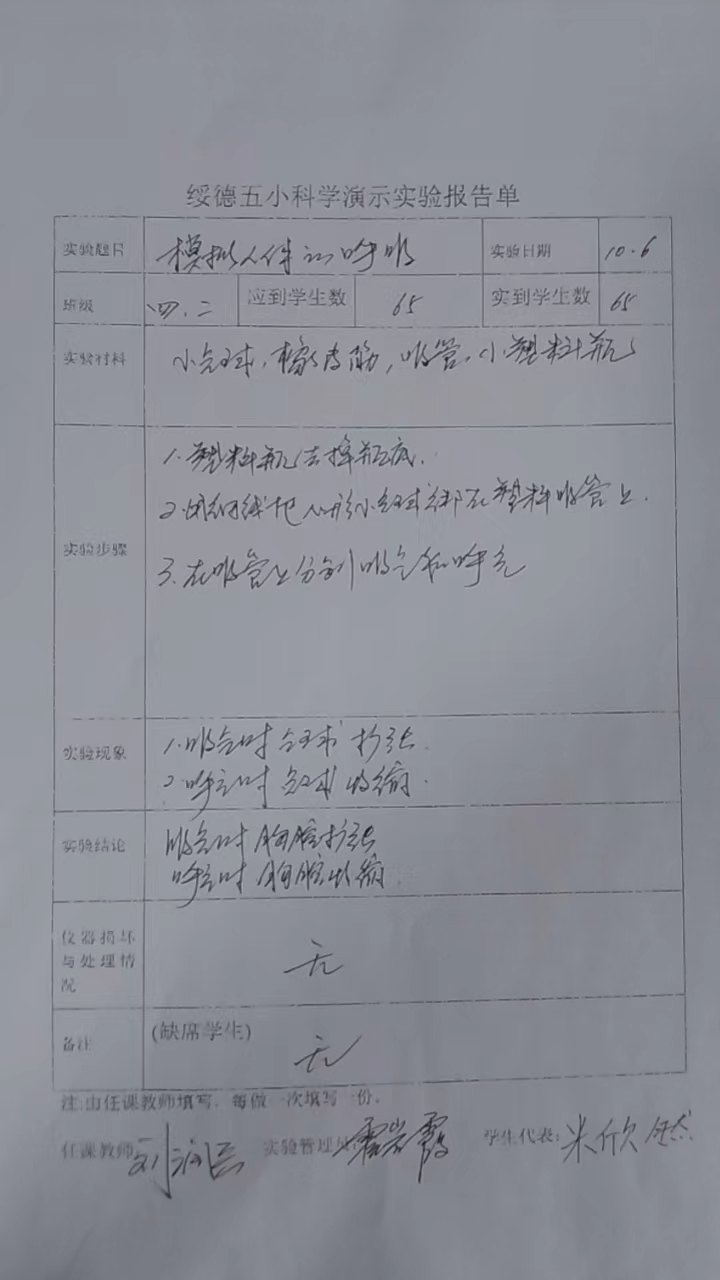 绥德五小科学演示实验报告单
实验题目 模拟人体的呼吸 实验日期 10.6
班级 四.二 应到学生数 65 实到学生数 65
实验材料 小气球.橡皮筋,吸管.小塑料瓶
实验步骤
1.塑料瓶去掉瓶底.
2.用细线把 小气球绑在塑料吸管上.
3.在吸管上分别吸气和呼气
实验现象
1.吸气时 气球扩张.
2.呼气时 气球收缩.
实验结论
吸气时胸腔扩张
呼气时胸腔收缩.
仪器损坏
与处理情
况
无
备注 (缺席学生)
无
注:由任课教师填写,每做一次填写一份。
任课教师 刘 实验管理员: 霞 学生代表: 米欣